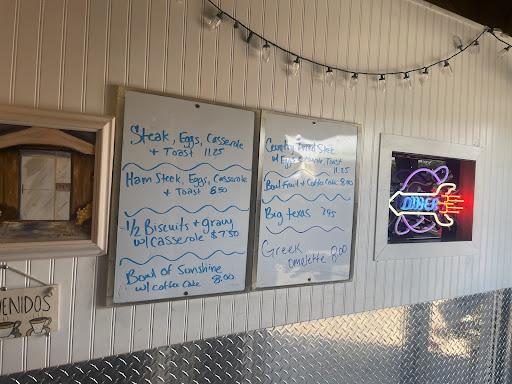 Steak, Eggs, Casserole
+ Toast 11.25
Ham Steak, Eggs, Casserole
+ Toast 8.50
1/2 Biscuits + gravy
w/ casserole $7.50
Bowl of Sunshine
w/ coffee cake 8.00
Country Fried Steak
w/ Eggs Toast
11.25
Bowl Fruit + Coffee Cake 8.00
Big Texas 795
Greek
omelette 8.00
DINER
ENIDOS